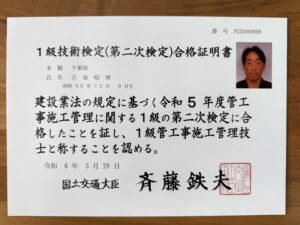 番 号 P231000898
1級技術検定(第二次検定)合格証明書
本 籍 千葉県
氏 名 古 泉 昭 博
昭和 60 年 12 月 9 日生
建設業法の規定に基づく令和 5 年度管工
事施工管理に関する1級の第二次検定に合
格したことを証し、1級管工事施工管理技
士と称することを認める。
令和 6 年 3 月 28 日
国土交通大臣 斉藤鉄夫